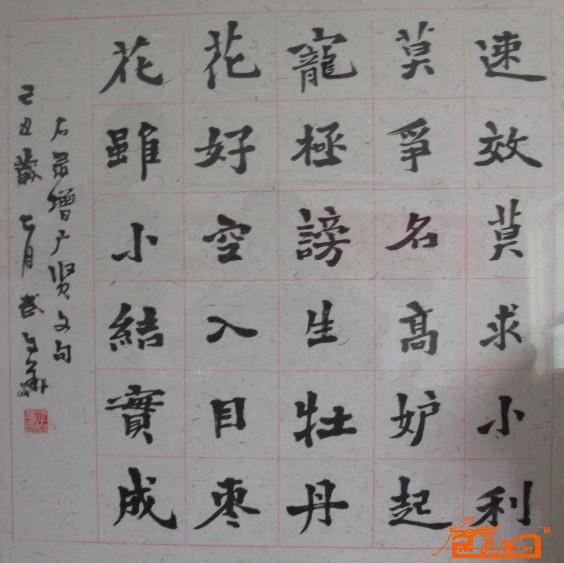 速效莫求小利
莫爭名高妒起
寵極謗生牡丹
花好空入目枣
花雖小結實成
右录增广贤文句
己丑歲七月